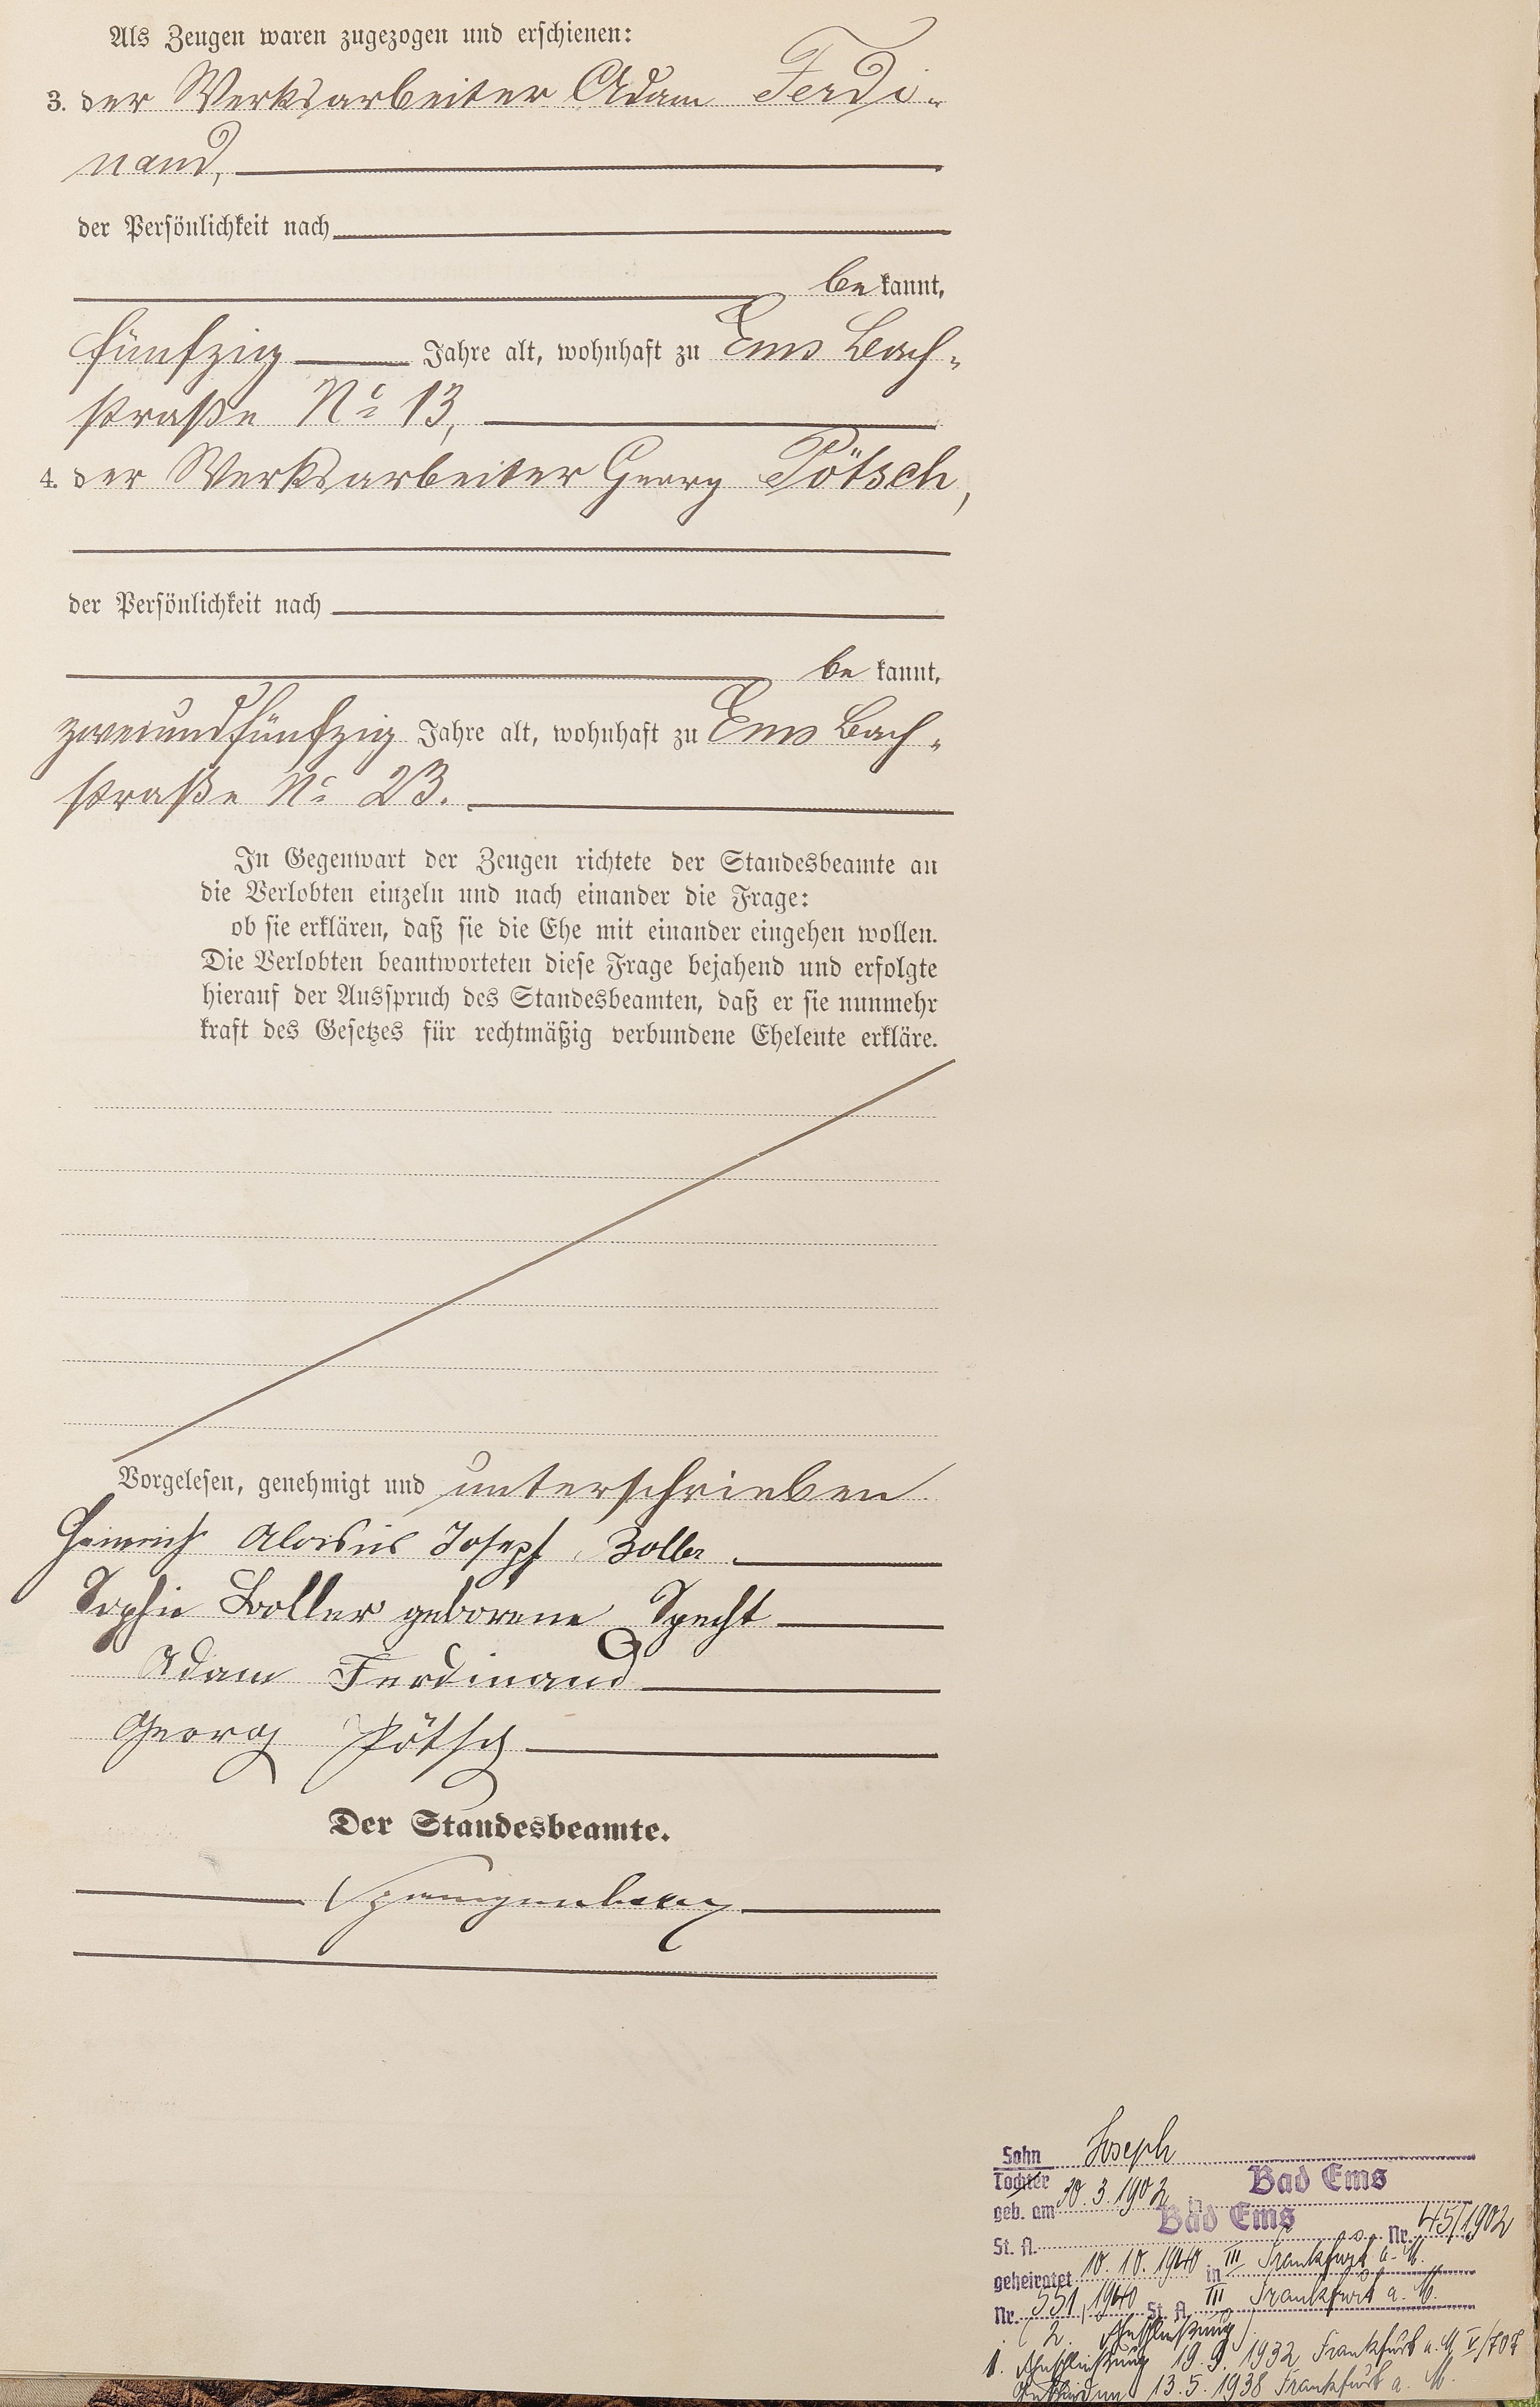 Als Zeugen waren zugezogen und erschienen:
3. der Werksarbeiter Adam Ferdi-
nand,
der Persönlichkeit nach
be kannt,
fünfzig Jahre alt, wohnhaft zu Ems Bach-
straße No 13,
4. der Werksarbeiter Georg Pötsch,
der Persönlichkeit nach
be kannt,
zweiundfünfzig Jahre alt, wohnhaft zu Ems Bach-
straße No 23.
In Gegenwart der Zeugen richtete der Standesbeamte an
die Verlobten einzeln und nach einander die Frage:
ob sie erklären, daß sie die Ehe mit einander eingehen wollen.
Die Verlobten beantworteten diese Frage bejahend und erfolgte
hierauf der Ausspruch des Standesbeamten, daß er sie nunmehr
kraft des Gesetzes für rechtmäßig verbundene Eheleute erkläre.
Vorgelesen, genehmigt und unterschrieben
Heinrich Aloisius Joseph Boller
Sophie Boller geborene Specht
Adam Ferdinand
Georg Pötsch
Der Standesbeamte.
Spangenberg
Sohn Joseph
Tochter
geb. am 30.3.1902 in Bad Ems
St. A. Bad Ems Nr. 45/1902
geheiratet 10.10.1940 in III Frankfurt a. M.
Nr. 551/1940 St. A. III Frankfurt a. M.
(2. Eheschließung)
1. Eheschließung 19.9.1932 Frankfurt a. M V/707
13.5.1938 Frankfurt a. M.